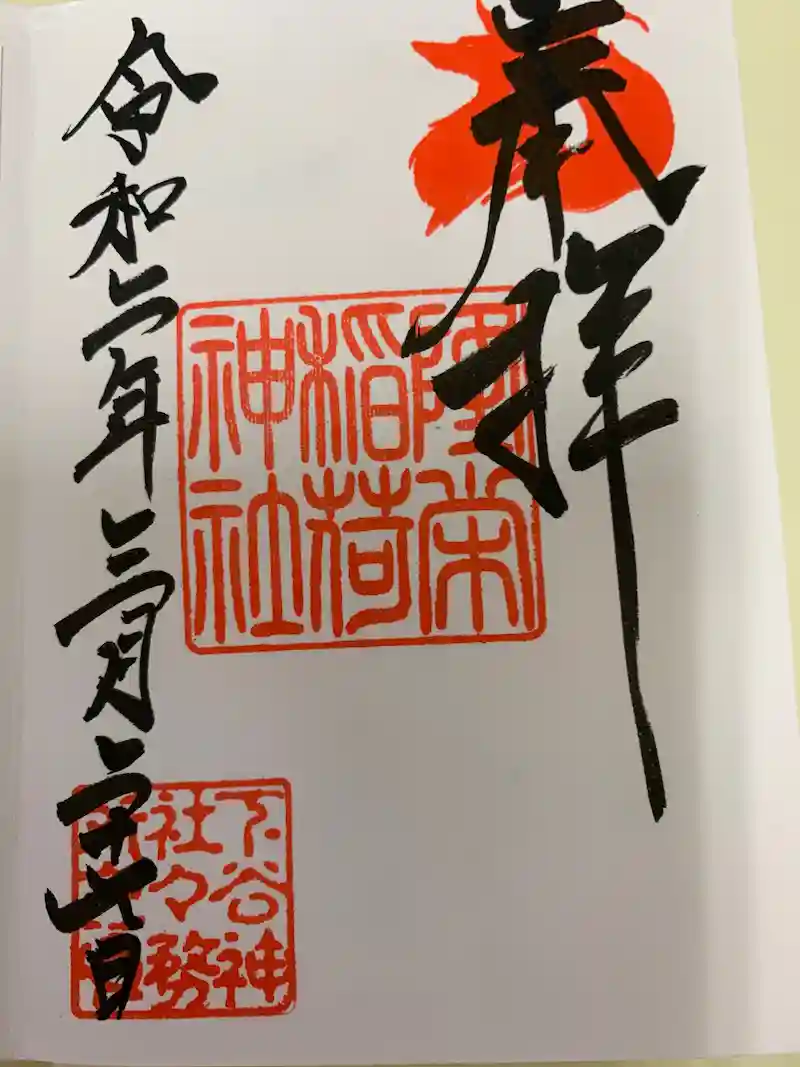 奉拝
隆栄
稲荷
神社
令和二年三月二十七日
下谷神
社々務
所